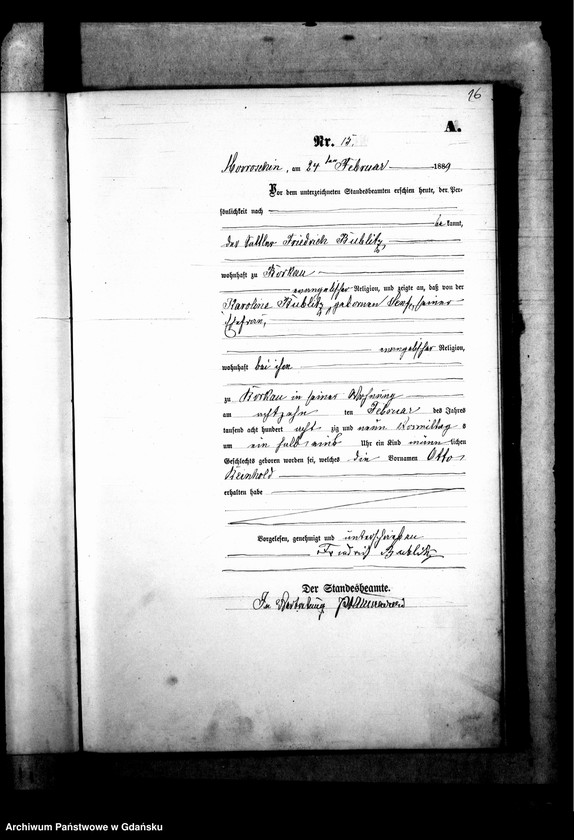 16
A.
Nr. 15.
Morroschin, am 24 ten Februar 1889
Vor dem unterzeichneten Standesbeamten erschien heute, der Per-
sönlichkeit nach
be kannt,
der Sattler Friedrich Bublitz,
wohnhaft zu Borkau
evangelischer Religion, und zeigte an, daß von der
Karoline Bublitz, geborenen seiner
Ehefrau,
evangelischer Religion,
wohnhaft bei ihm
zu Borkau in seiner Wohnung
am achtzehn ten Februar des Jahres
tausend acht hundert acht zig und neun Vormittag s
um ein halb eins Uhr ein Kind männ lichen
Geschlechts geboren worden sei, welches die Vornamen Otto
Reinhold
erhalten habe
Vorgelesen, genehmigt und unterschrieben
Friedrich Bublitz
Der Standesbeamte.
In Vertretung
Archiwum Państwowe w Gdańsku